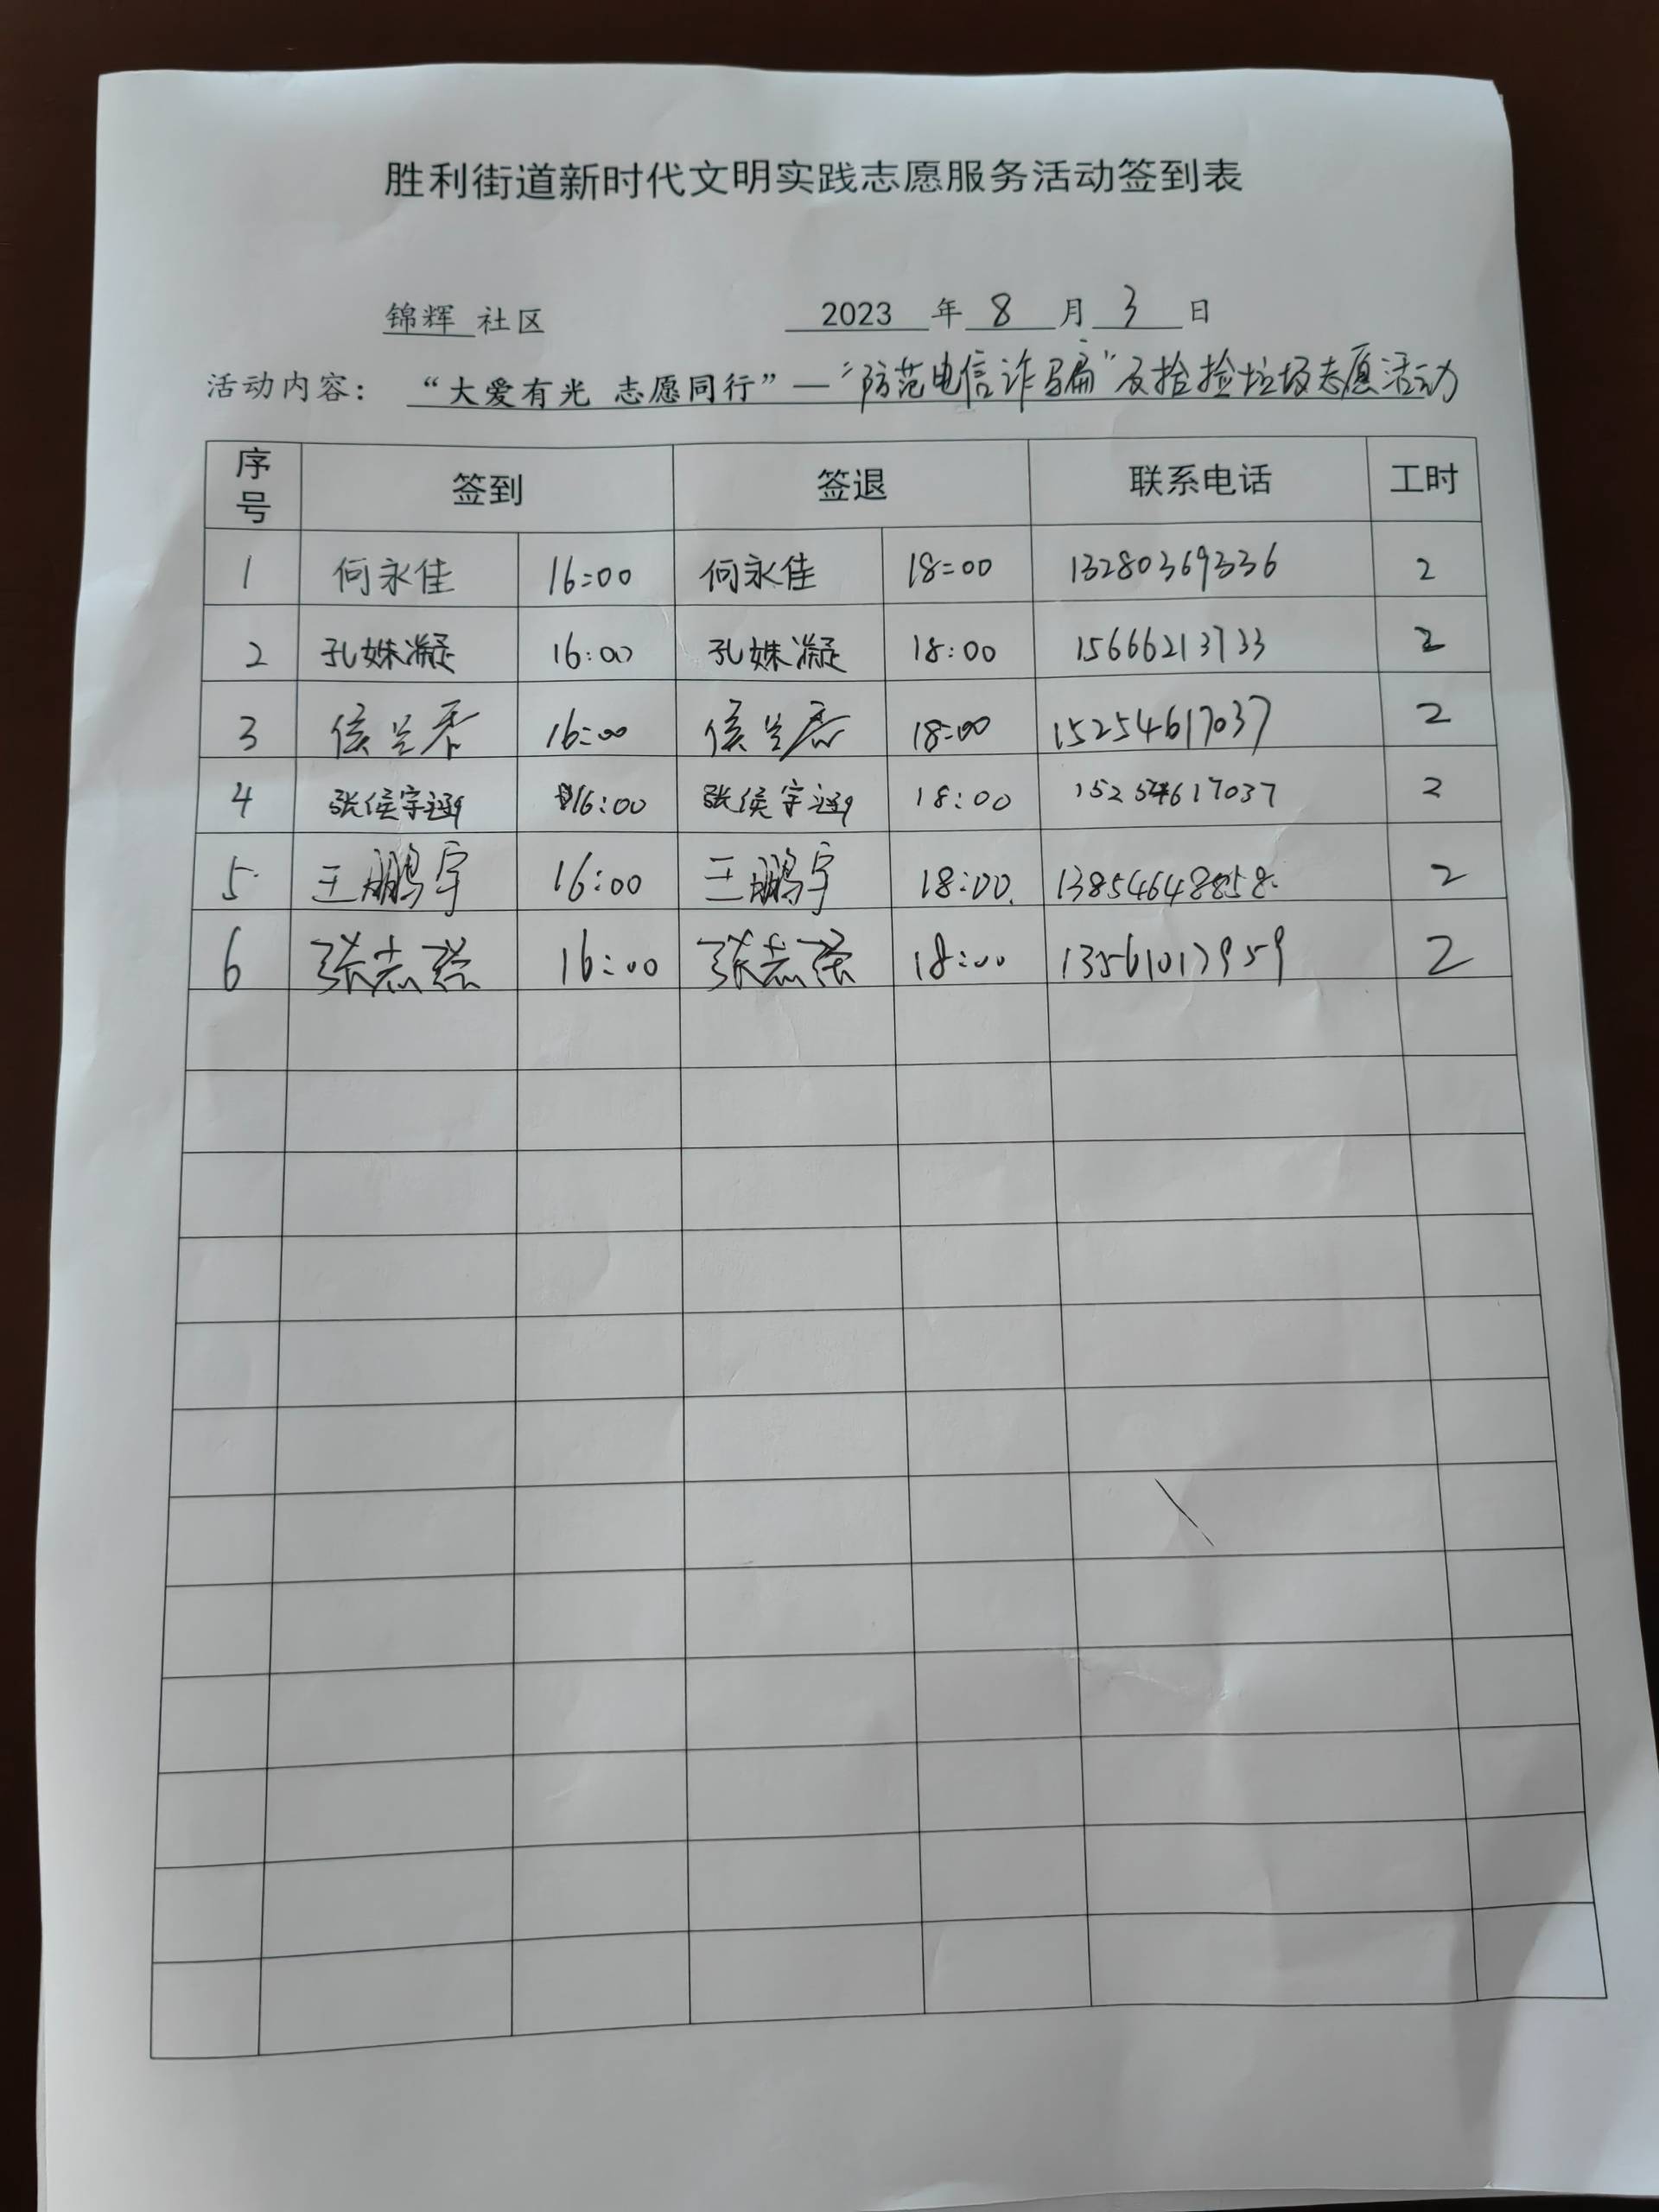 胜利街道新时代文明实践志愿服务活动签到表
锦辉 社区 2023 年 8 月 3 日
活动内容： “大爱有光 志愿同行”—“防范电信诈骗”及捡捡垃圾志愿活动
序号 签到 签退 联系电话 工时
1 何永佳 16:00 何永佳 18:00 13280369336 2
2 孔姝凝 16:00 孔姝凝 18:00 15666213733 2
3 侯兰香 16:00 侯兰香 18:00 15254617037 2
4 张侯宇涵 16:00 张侯宇涵 18:00 15254617037 2
5 王鹏宇 16:00 王鹏宇 18:00 13854648858 2
6 张志强 16:00 张志强 18:00 2